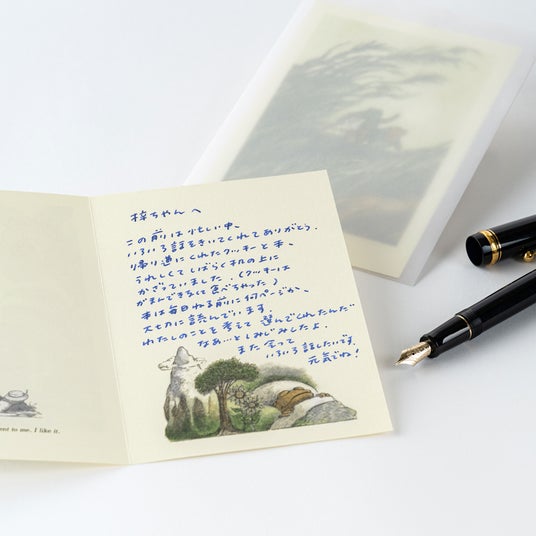 梓ちゃんへ
この前は忙しい中、
いろいろ話をきいてくれてありがとう.
帰り道にくれたクッキーと本、
うれしくてしばらく机の上に
かざっていました.(クッキーは
がまんできなくて食べちゃった)
本は毎日ねる前に何ページか、
大切に読んでいます.
わたしのことを考えて選んでくれたんだ
なあ…としみじみしたよ.
また会って
いろいろ話したいです.
元気でね!
ent to me. I like it.